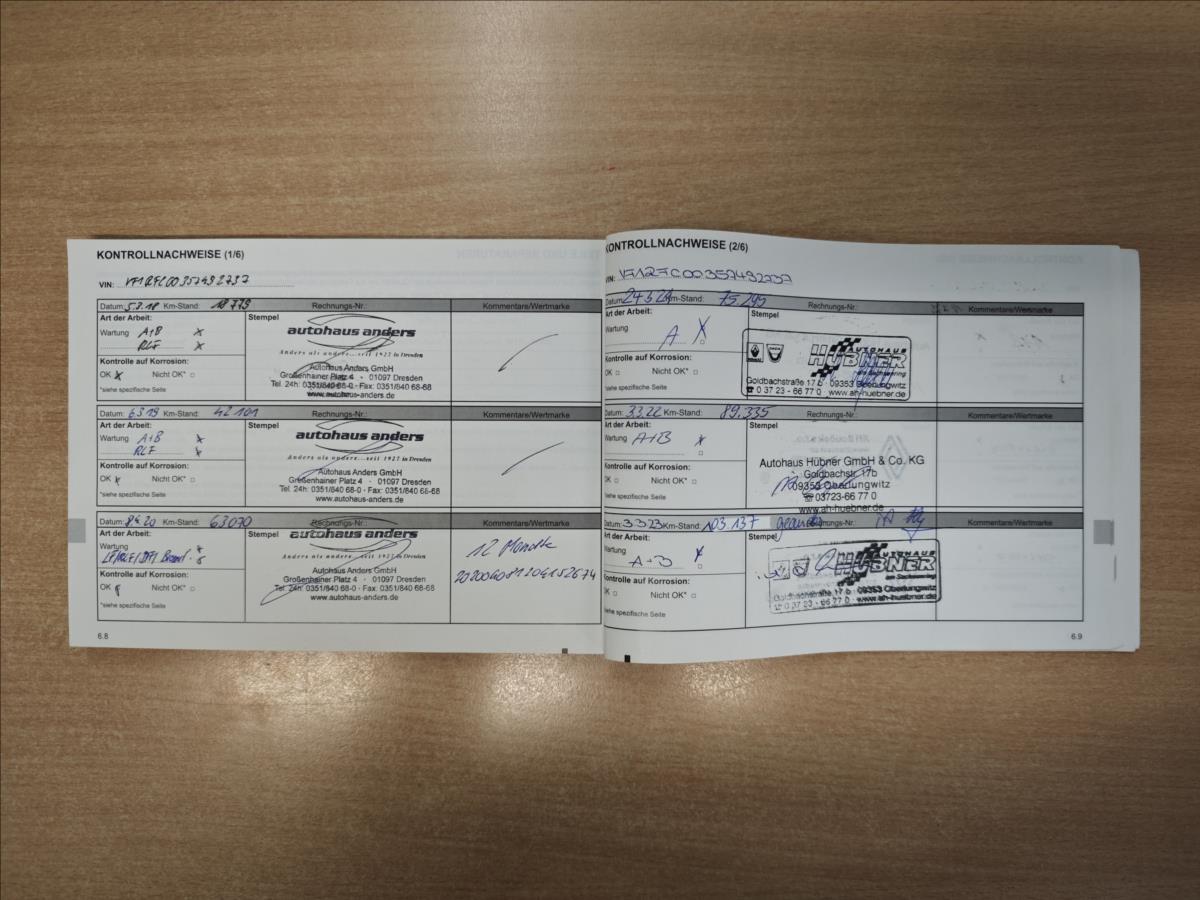 KONTROLLNACHWEISE (1/6)
VIN: VF1RFC00357492737
Datum: 5.3.18 Km-Stand: 18 779 Rechnungs-Nr.: Kommentare/Wertmarke
Art der Arbeit: Stempel
Wartung A+B x
RLF x
Kontrolle auf Korrosion:
OK x Nicht OK*
*siehe spezifische Seite
autohaus anders
Anders als andere...seit 1927 in Dresden
Autohaus Anders GmbH
Großenhainer Platz 4 - 01097 Dresden
Tel. 24h: 0351/840 68-0 - Fax: 0351/840 68-68
www.autohaus-anders.de
Datum: 6.3.19 Km-Stand: 42 101 Rechnungs-Nr.: Kommentare/Wertmarke
Art der Arbeit: Stempel
Wartung A+B x
RLF x
Kontrolle auf Korrosion:
OK x Nicht OK*
*siehe spezifische Seite
autohaus anders
Anders als andere...seit 1927 in Dresden
Autohaus Anders GmbH
Großenhainer Platz 4 - 01097 Dresden
Tel. 24h: 0351/840 68-0 - Fax: 0351/840 68-68
www.autohaus-anders.de
Datum: Km-Stand: 63070 Rechnungs-Nr.: Kommentare/Wertmarke
Art der Arbeit: Stempel
Wartung
Kontrolle auf Korrosion:
OK Nicht OK*
*siehe spezifische Seite
autohaus anders
Anders als andere...seit 1927 in Dresden
Autohaus Anders GmbH
Großenhainer Platz 4 - 01097 Dresden
Tel. 24h: 0351/840 68-0 - Fax: 0351/840 68-68
www.autohaus-anders.de
12 Monate
6.8
KONTROLLNACHWEISE (2/6)
VIN: VF1RFC00357492737
Datum: Km-Stand: 75 295 Rechnungs-Nr.: Kommentare/Wertmarke
Art der Arbeit: Stempel
Wartung A x
Kontrolle auf Korrosion:
OK Nicht OK*
*siehe spezifische Seite
AUTOHAUS
HÜBNER
am Sachsenring
Goldbachstraße 17 b · 09353 Oberlungwitz
☎ 0 37 23 - 66 77 0 · www.ah-huebner.de
Datum: 3.3.22 Km-Stand: 89.335 Rechnungs-Nr.: Kommentare/Wertmarke
Art der Arbeit: Stempel
Wartung A+B x
Kontrolle auf Korrosion:
OK Nicht OK*
*siehe spezifische Seite
Autohaus Hübner GmbH & Co. KG
Goldbachstr. 17b
09353 Oberlungwitz
☎03723-66 77 0
www.ah-huebner.de
Datum: 3.3.23 Km-Stand: 103.137 Rechnungs-Nr.: Kommentare/Wertmarke
Art der Arbeit: Stempel
Wartung A+B x
Kontrolle auf Korrosion:
OK Nicht OK*
*siehe spezifische Seite
AUTOHAUS
HÜBNER
am Sachsenring
Goldbachstraße 17 b · 09353 Oberlungwitz
☎ 0 37 23 - 66 77 0 · www.ah-huebner.de
6.9